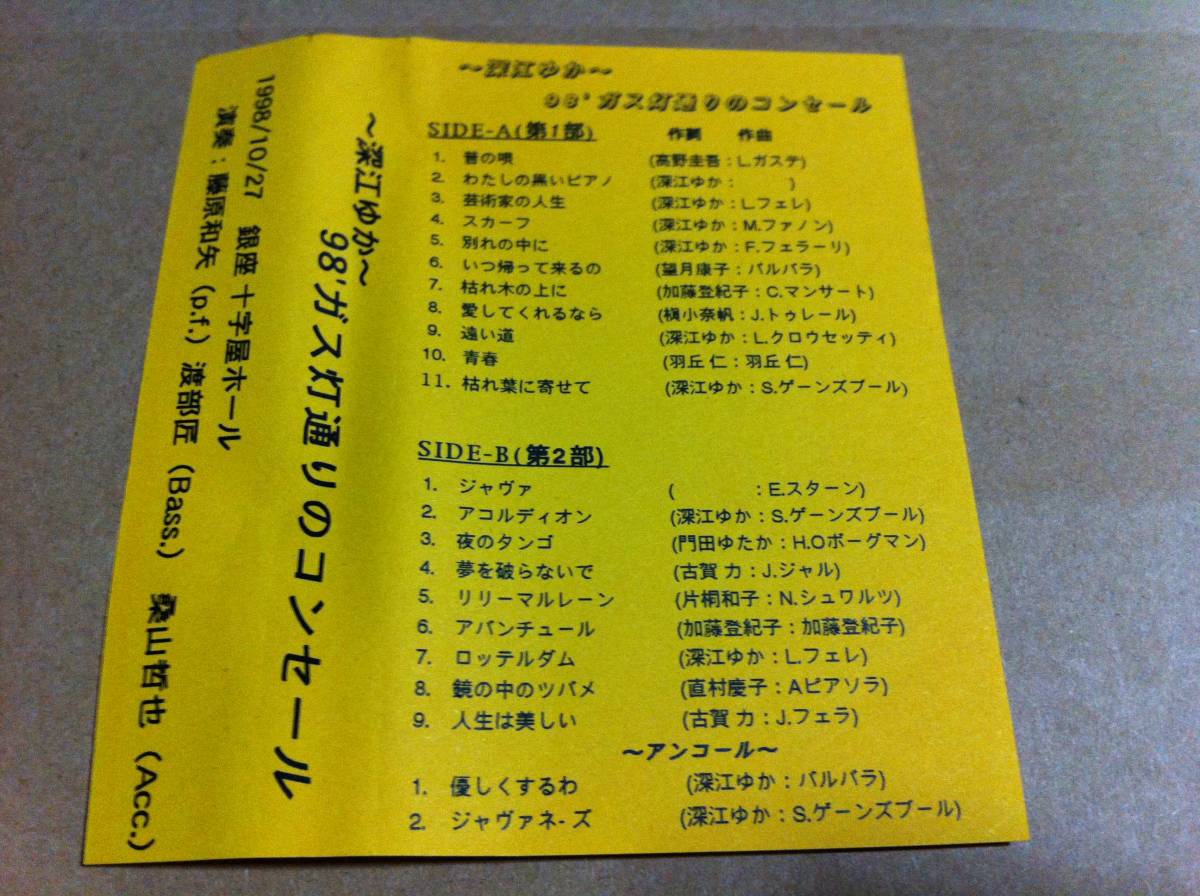 ～深江ゆか～
98'ガス灯通りのコンセール
SIDE-A(第1部) 作詞 作曲
1. 昔の唄 (高野圭吾：L.ガステ)
2. わたしの黒いピアノ (深江ゆか： )
3. 芸術家の人生 (深江ゆか：L.フェレ)
4. スカーフ (深江ゆか：M.ファノン)
5. 別れの中に (深江ゆか：F.フェラーリ)
6. いつ帰って来るの (望月康子：バルバラ)
7. 枯れ木の上に (加藤登紀子：C.マンサート)
8. 愛してくれるなら (槇小奈帆：J.トゥレール)
9. 遠い道 (深江ゆか：L.クロウセッティ)
10. 青春 (羽丘 仁：羽丘 仁)
11. 枯れ葉に寄せて (深江ゆか：S.ゲーンズブール)
SIDE-B(第2部)
1. ジャヴァ ( ：E.スターン)
2. アコルディオン (深江ゆか：S.ゲーンズブール)
3. 夜のタンゴ (門田ゆたか：H.Oボーグマン)
4. 夢を破らないで (古賀 力：J.ジャル)
5. リリーマルレーン (片桐和子：N.シュワルツ)
6. アバンチュール (加藤登紀子：加藤登紀子)
7. ロッテルダム (深江ゆか：L.フェレ)
8. 鏡の中のツバメ (直村慶子：Aピアソラ)
9. 人生は美しい (古賀 力：J.フェラ)
～アンコール～
1. 優しくするわ (深江ゆか：バルバラ)
2. ジャヴァネ-ズ (深江ゆか：S.ゲーンズブール)
～深江ゆか～
98'ガス灯通りのコンセール
1998/10/27 銀座 十字屋ホール
演奏：藤原和矢（p.f.）渡部匠（Bass.） 桑山哲也（Acc.）